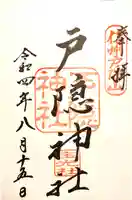 奉拝
信州戸隠山
戸隠神社
令和四年八月十五日